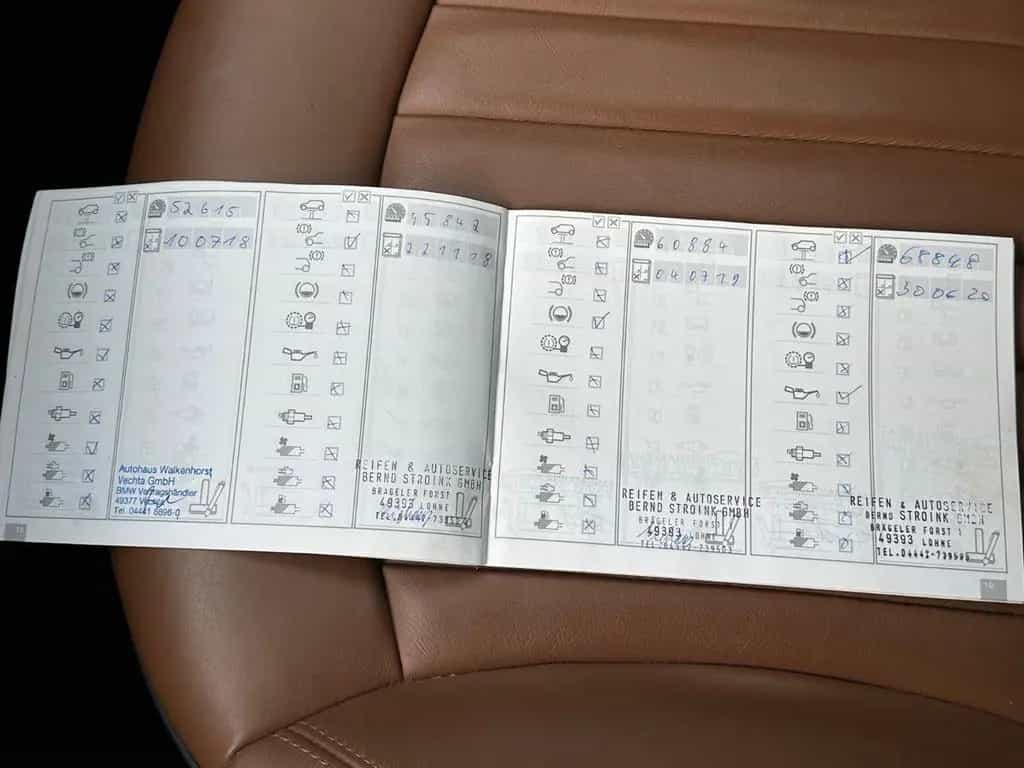 52615
100718
Autohaus Walkenhorst
Vechta GmbH
BMW Vertragshändler
49377
Tel. 04441
221118
REIFEN & AUTOSERVICE
BERND STROINK GMBH
BRÄGELER FORST
49393 LOHNE
60884
040719
REIFEN & AUTOSERVICE
BERND STROINK GMBH
BRÄGELER FORST 1
49393 LOHNE
68848
300620
REIFEN & AUTOSERVICE
BERND STROINK GMBH
BRÄGELER FORST 1
49393 LOHNE
TEL.04442-739503